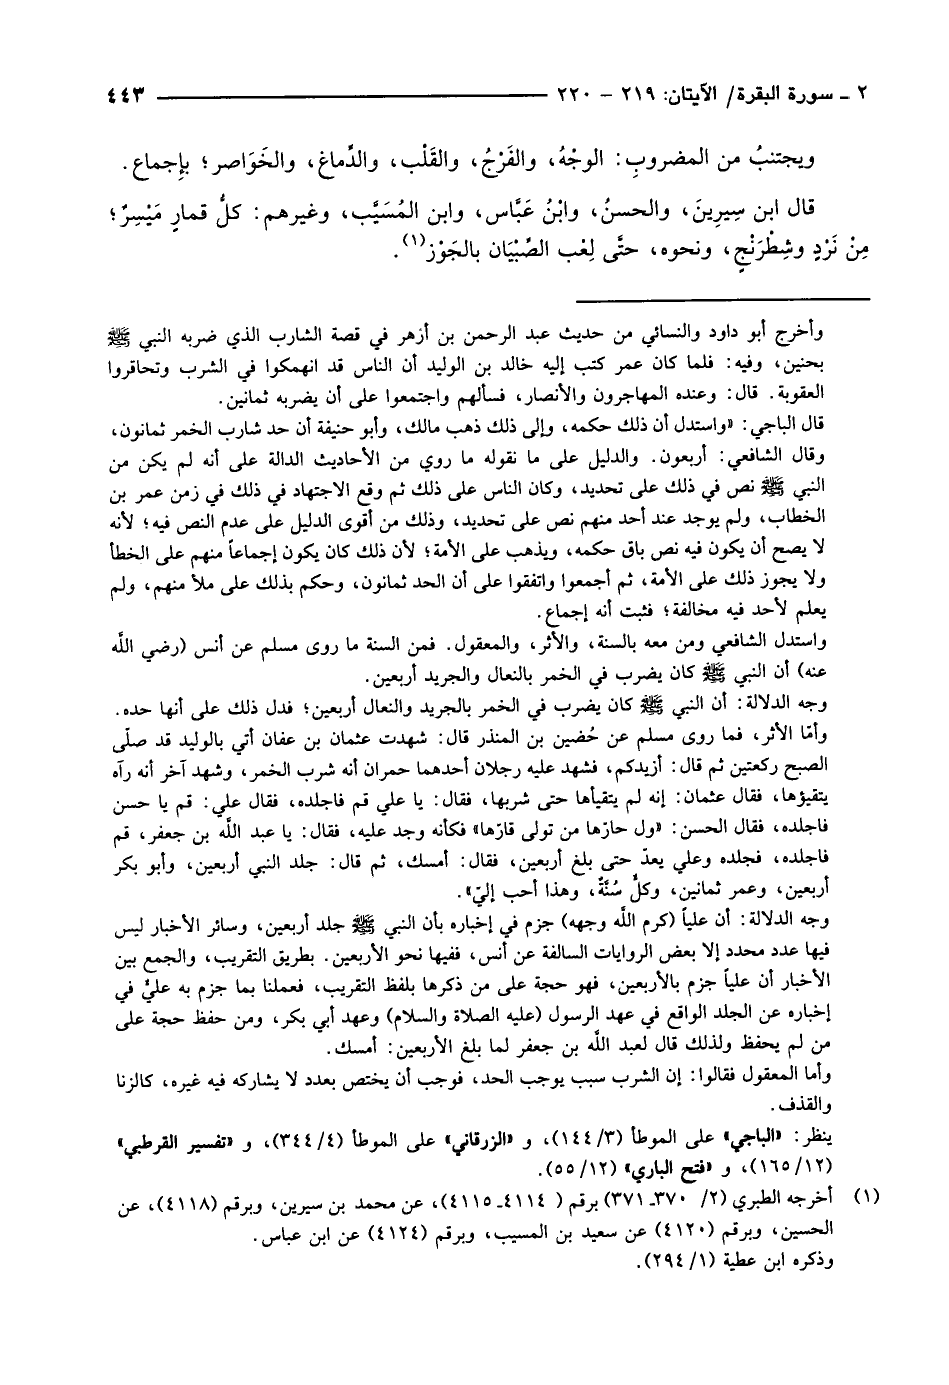 ٢ ـ سورة البقرة/ الآيتان: ٢١٩ - ٢٢٠ ٤٤٣
ويجتنبُ من المضروبِ: الوجْهُ، والفَرْجُ، والقَلْب، والدِّماغ، والخَوَاصر؛ بإجماع.
قال ابن سِيرِينَ، والحسنُ، وابْنُ عَبَّاس، وابن المُسَيَّب، وغيرهم: كلُّ قمارٍ مَيْسِرٌ؛
مِنْ نَرْدٍ وشِطْرَنْجٍ، ونحوه، حتَّى لِعْب الصِّبْيَان بالجَوْز(١).
وأخرج أبو داود والنسائي من حديث عبد الرحمن بن أزهر في قصة الشارب الذي ضربه النبي ﷺ
بحنين، وفيه: فلما كان عمر كتب إليه خالد بن الوليد أن الناس قد انهمكوا في الشرب وتحاقروا
العقوبة. قال: وعنده المهاجرون والأنصار، فسألهم واجتمعوا على أن يضربه ثمانين.
قال الباجي: «واستدل أن ذلك حكمه، وإلى ذلك ذهب مالك، وأبو حنيفة أن حد شارب الخمر ثمانون،
وقال الشافعي: أربعون. والدليل على ما نقوله ما روي من الأحاديث الدالة على أنه لم يكن من
النبي ﷺ نص في ذلك على تحديد، وكان الناس على ذلك ثم وقع الاجتهاد في ذلك في زمن عمر بن
الخطاب، ولم يوجد عند أحد منهم نص على تحديد، وذلك من أقوى الدليل على عدم النص فيه؛ لأنه
لا يصح أن يكون فيه نص باق حكمه، ويذهب على الأمة؛ لأن ذلك كان يكون إجماعاً منهم على الخطأ
ولا يجوز ذلك على الأمة، ثم أجمعوا واتفقوا على أن الحد ثمانون، وحكم بذلك على ملأ منهم، ولم
يعلم لأحد فيه مخالفة؛ فثبت أنه إجماع.
واستدل الشافعي ومن معه بالسنة، والأثر، والمعقول. فمن السنة ما روى مسلم عن أنس (رضي اللَّه
عنه) أن النبي ﷺ كان يضرب في الخمر بالنعال والجريد أربعين.
وجه الدلالة: أن النبي ﷺ كان يضرب في الخمر بالجريد والنعال أربعين؛ فدل ذلك على أنها حده.
وأمّا الأثر، فما روى مسلم عن حُضين بن المنذر قال: شهدت عثمان بن عفان أتي بالوليد قد صلّى
الصبح ركعتين ثم قال: أزيدكم، فشهد عليه رجلان أحدهما حمران أنه شرب الخمر، وشهد آخر أنه رآه
يتقيؤها، فقال عثمان: إنه لم يتقيأها حتى شربها، فقال: يا علي قم فاجلده، فقال علي: قم يا حسن
فاجلده، فقال الحسن: «ول حارّها من تولى قارّها» فكأنه وجد عليه، فقال: يا عبد اللَّه بن جعفر، قم
فاجلده، فجلده وعلي يعدّ حتى بلغ أربعين، فقال: أمسك، ثم قال: جلد النبي أربعين، وأبو بكر
أربعين، وعمر ثمانين، وكلٌّ سُنَّةٌ، وهذا أحب إليّ».
وجه الدلالة: أن علياً (كرم اللَّه وجهه) جزم في إخباره بأن النبي ﷺ جلد أربعين، وسائر الأخبار ليس
فيها عدد محدد إلا بعض الروايات السالفة عن أنس، ففيها نحو الأربعين. بطريق التقريب، والجمع بين
الأخبار أن علياً جزم بالأربعين، فهو حجة على من ذكرها بلفظ التقريب، فعملنا بما جزم به عليٌ في
إخباره عن الجلد الواقع في عهد الرسول (عليه الصلاة والسلام) وعهد أبي بكر، ومن حفظ حجة على
من لم يحفظ ولذلك قال لعبد اللَّه بن جعفر لما بلغ الأربعين: أمسك.
وأما المعقول فقالوا: إن الشرب سبب يوجب الحد، فوجب أن يختص بعدد لا يشاركه فيه غيره، كالزنا
والقذف.
ينظر: «الباجي» على الموطأ (٣/ ١٤٤)، و «الزرقاني» على الموطأ (٤/ ٣٤٤)، و «تفسير القرطبي»
(١٢/ ١٦٥)، و «فتح الباري» (١٢/ ٥٥).
(١) أخرجه الطبري (٢/ ٣٧٠ـ ٣٧١) برقم ( ٤١١٤ـ ٤١١٥)، عن محمد بن سيرين، وبرقم (٤١١٨)، عن
الحسين، وبرقم (٤١٢٠) عن سعيد بن المسيب، وبرقم (٤١٢٤) عن ابن عباس.
وذكره ابن عطية (١/ ٢٩٤).